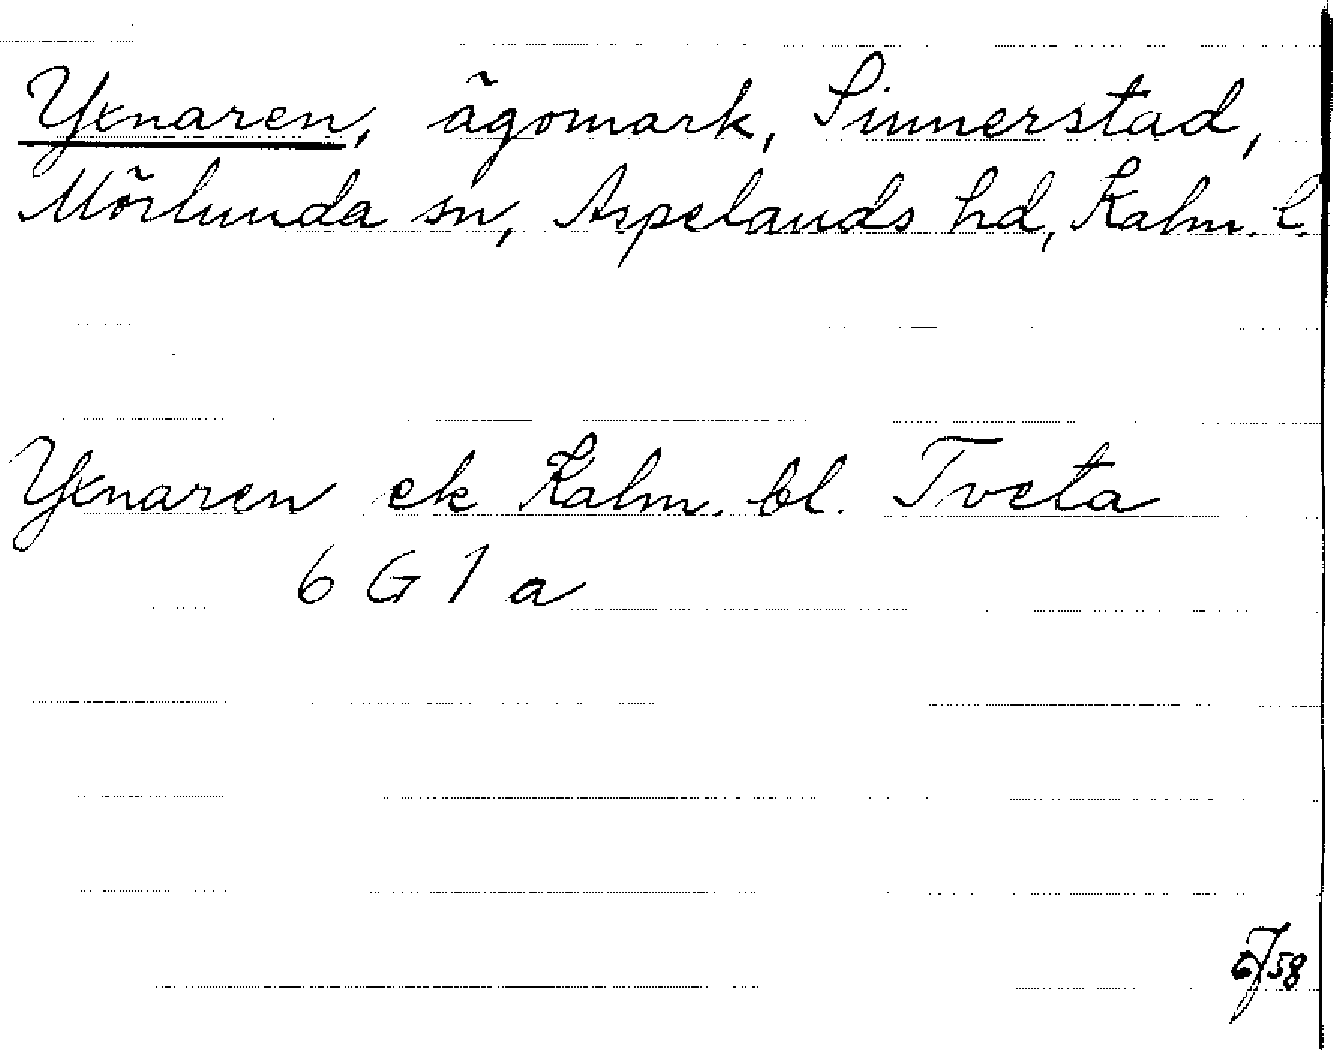 Yxnaren, ägomark, Sinnerstad,
Mörlunda sn, Aspelands hd, Kalm. l.
Yxnaren ek Kalm. bl. Tveta
6 G 1 a